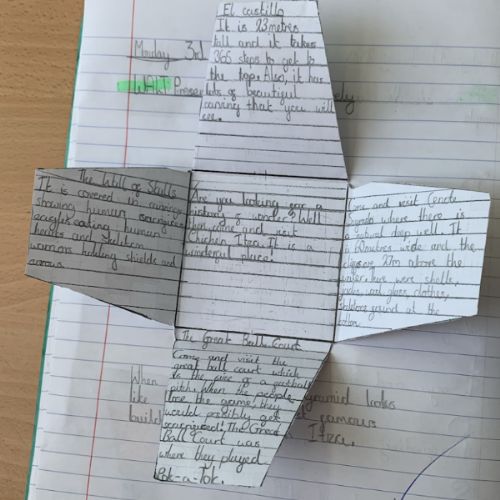 El castillo
It is 23 metres
tall and it takes
365 steps to get to
the top. Also, it has
lots of beautiful
carving that you will
see.
Monday 3rd
WALT Prese
ely
The Wall of Skulls
It is covered in carvings
showing human
eagles eating human
hearts and skeleton
warriors holding shields and
arrows.
Are you looking for a
of wonder? Well
come and visit
Chichen Itza. It is a
wonderful place.
Come and visit Cenote
where there is
natural deep well. It
is 60 metres wide and the
27m above the
water. were shells,
clothes,
found at the
The Great Ball Court
Come and visit the
great ball court which
is the size of a football
pitch. When the people
lose the game, they
would possibly get
sacrificed. The Great
Ball Court was
where they played
Pok-a-Tok.
When
like
build
pyramid looks
famous
Itza.